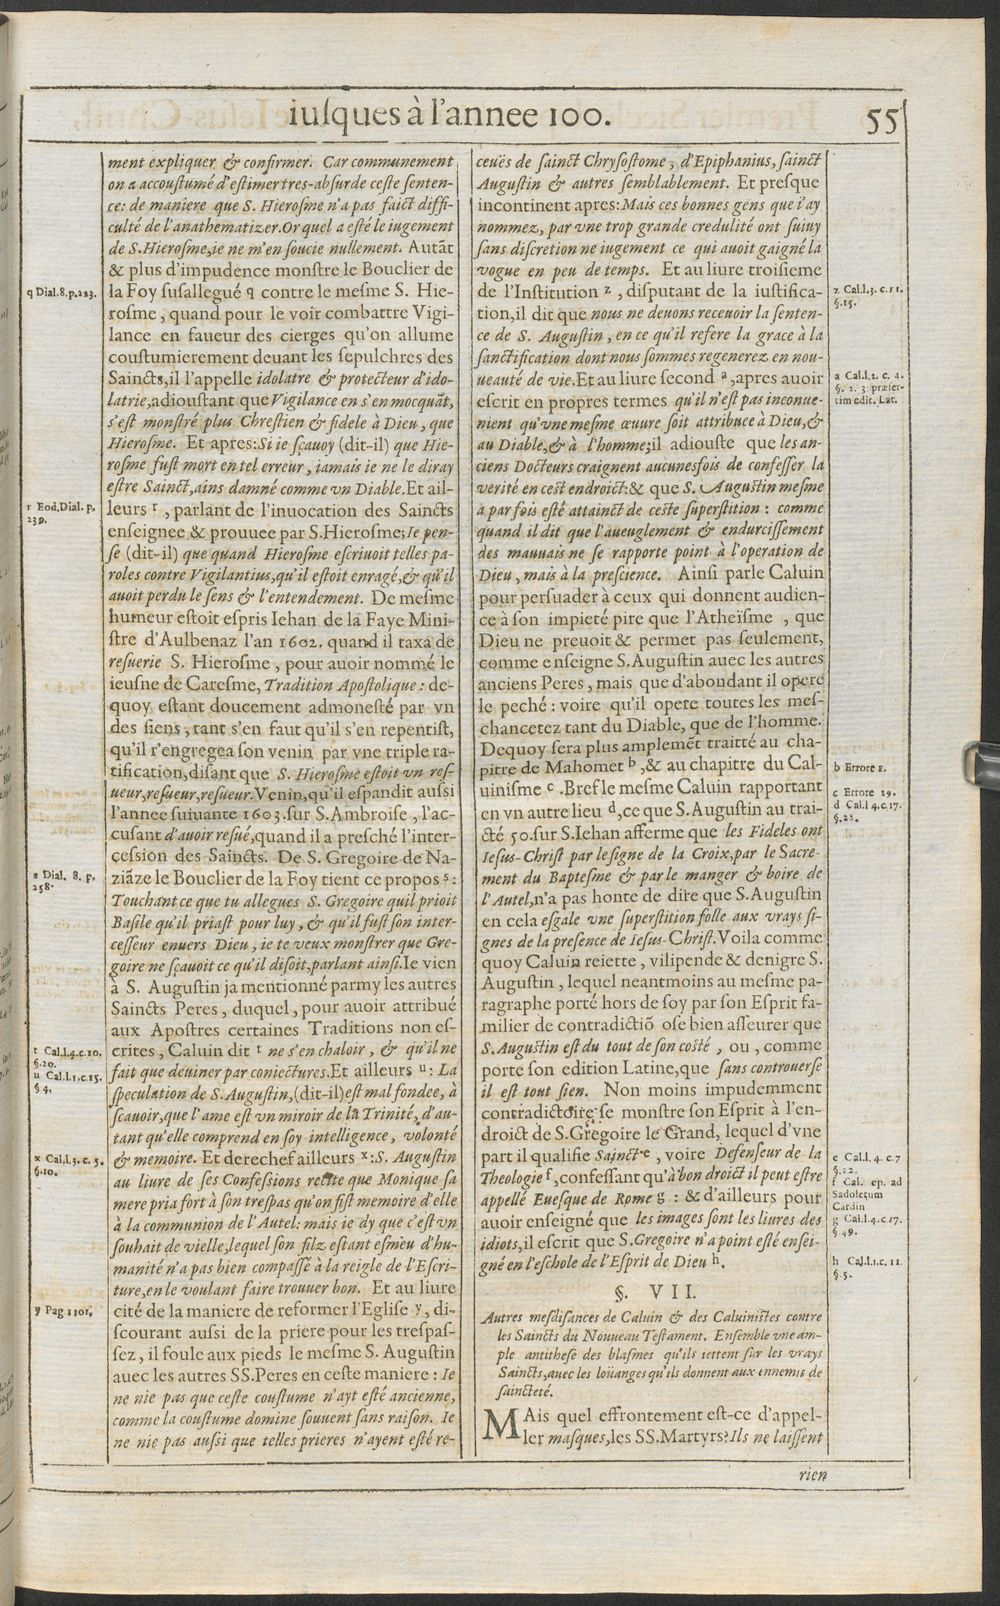 iusques à l'annee 100.
55
ment expliquer & confirmer. Car communement
on a accoustumé d'estimer tres-absurde ceste senten-
ce: de maniere que S. Hierosme n'a pas faict diffi-
culté de l'anathematizer. Or quel a esté le iugement
de S. Hierosme, ie ne m'en soucie nullement. Autāt
& plus d'impudence monstre le Bouclier de
la Foy susallegué q contre le mesme S. Hie-
rosme, quand pour le voir combattre Vigi-
lance en faueur des cierges qu'on allume
coustumierement deuant les sepulchres des
Saincts, il l'appelle idolatre & protecteur d'ido-
latrie, adioustant que Vigilance en s'en mocquāt,
s'est monstré plus Chrestien & fidele à Dieu, que
Hierosme. Et apres: Si ie sçauoy (dit-il) que Hie-
rosme fust mort en tel erreur, iamais ie ne le diray
estre Sainct, ains damné comme vn Diable. Et ail-
leurs r, parlant de l'inuocation des Saincts
enseignee & prouuee par S. Hierosme; Ie pen-
se (dit-il) que quand Hierosme escriuoit telles pa-
roles contre Vigilantius, qu'il estoit enragé, & qu'il
auoit perdu le sens & l'entendement. De mesme
humeur estoit espris Iehan de la Faye Mini-
stre d'Aulbenaz l'an 1602. quand il taxa de
resuerie S. Hierosme, pour auoir nommé le
ieusne de Caresme, Tradition Apostolique: de-
quoy estant doucement admonesté par vn
des siens, tant s'en faut qu'il s'en repentist,
qu'il r'engregea son venin par vne triple ra-
tification, disant que S. Hierosme estoit vn res-
ueur, resueur, resueur. Venin, qu'il espandit aussi
l'annee suiuante 1603. sur S. Ambroise, l'ac-
cusant d'auoir resué, quand il a presché l'inter-
cession des Saincts. De S. Gregoire de Na-
ziāze le Bouclier de la Foy tient ce propos s:
Touchant ce que tu allegues S. Gregoire quil prioit
Basile qu'il priast pour luy, & qu'il fust son inter-
cesseur enuers Dieu, ie te veux monstrer que Gre-
goire ne sçauoit ce qu'il disoit, parlant ainsi. Ie vien
à S. Augustin ja mentionné parmy les autres
Saincts Peres, duquel, pour auoir attribué
aux Apostres certaines Traditions non es-
crites, Caluin dit t ne s'en chaloir, & qu'il ne
fait que deuiner par coniectures. Et ailleurs u: La
speculation de S. Augustin, (dit-il) est mal fondee, à
sçauoir, que l'ame est vn miroir de la Trinité, d'au-
tant qu'elle comprend en soy intelligence, volonté
& memoire. Et derechef ailleurs x: S. Augustin
au liure de ses Confessions recite que Monique sa
mere pria fort à son trespas qu'on fist memoire d'elle
à la communion de l'Autel: mais ie dy que c'est vn
souhait de vielle, lequel son filz estant esmeu d'hu-
manité n'a pas bien compassé à la reigle de l'Escri-
ture, en le voulant faire trouuer bon. Et au liure
cité de la maniere de reformer l'Eglise y, di-
scourant aussi de la priere pour les trespas-
sez, il foule aux pieds le mesme S. Augustin
auec les autres SS. Peres en ceste maniere: Ie
ne nie pas que ceste coustume n'ayt esté ancienne,
comme la coustume domine souuent sans raison. Ie
ne nie pas aussi que telles prieres n'ayent esté re-
q Dial. 8. p. 223.
r Eod. Dial. p.
239.
s Dial. 8. p.
258.
t Cal. l. 4. c. 10.
§. 20.
u Cal. l. 1. c. 15.
§ 4.
x Cal. l. 3. c. 5.
§. 10.
y Pag 1101.
ceuës de sainct Chrysostome, d'Epiphanius, sainct
Augustin & autres semblablement. Et presque
incontinent apres: Mais ces bonnes gens que i'ay
nommez, par vne trop grande credulité ont suiuy
sans discretion ne iugement ce qui auoit gaigné la
vogue en peu de temps. Et au liure troisieme
de l'Institution z, disputant de la iustifica-
tion, il dit que nous ne deuons receuoir la senten-
ce de S. Augustin, en ce qu'il refere la grace à la
sanctification dont nous sommes regenerez en nou-
ueauté de vie. Et au liure second a, apres auoir
escrit en propres termes qu'il n'est pas inconue-
nient qu'vne mesme œuure soit attribuee à Dieu, &
au Diable, & à l'homme; il adiouste que les an-
ciens Docteurs craignent aucunesfois de confesser la
verité en cest endroict: & que S. Augustin mesme
a par fois esté attainct de ceste superstition: comme
quand il dit que l'aueuglement & endurcissement
des mauuais ne se rapporte point à l'operation de
Dieu, mais à la prescience. Ainsi parle Caluin
pour persuader à ceux qui donnent audien-
ce à son impieté pire que l'Atheïsme, que
Dieu ne preuoit & permet pas seulement,
comme enseigne S. Augustin auec les autres
anciens Peres, mais que d'abondant il opere
le peché: voire qu'il opere toutes les mes-
chancetez tant du Diable, que de l'homme.
Dequoy sera plus amplemēt traitté au cha-
pitre de Mahomet b, & au chapitre du Cal-
uinisme c. Bref le mesme Caluin rapportant
en vn autre lieu d, ce que S. Augustin au trai-
cté 50. sur S. Iehan afferme que les Fideles ont
Iesus-Christ par le signe de la Croix, par le Sacre-
ment du Baptesme & par le manger & boire de
l'Autel, n'a pas honte de dire que S. Augustin
en cela esgale vne superstition folle aux vrays si-
gnes de la presence de Iesus-Christ. Voila comme
quoy Caluin reiette, vilipende & denigre S.
Augustin, lequel neantmoins au mesme pa-
ragraphe porté hors de soy par son Esprit fa-
milier de contradictiō ose bien asseurer que
S. Augustin est du tout de son costé, ou, comme
porte son edition Latine, que sans controuerse
il est tout sien. Non moins impudemment
contradictoire se monstre son Esprit à l'en-
droict de S. Gregoire le Grand, lequel d'vne
part il qualifie Sainct e, voire Defenseur de la
Theologie f, confessant qu'à bon droict il peut estre
appellé Euesque de Rome g: & d'ailleurs pour
auoir enseigné que les images sont les liures des
idiots, il escrit que S. Gregoire n'a point esté ensei-
gné en l'eschole de l'Esprit de Dieu h.
§. VII.
Autres mesdisances de Caluin & des Caluinistes contre
les Saincts du Nouueau Testament. Ensemble vne am-
ple antithese des blasmes qu'ils iettent sur les vrays
Saincts, auec les loüanges qu'ils donnent aux ennemis de
saincteté.
MAis quel effrontement est-ce d'appel-
ler masques, les SS. Martyrs? Ils ne laissent
rien
z Cal. l. 3. c. 11.
§. 15.
a Cal. l. 2. c. 4.
§. 2. 3 præser-
tim edit. Lat.
b Errore 1.
c Errore 19.
d Cal. l 4. c. 17.
§. 28.
e Cal. l. 4. c. 7
§. 22.
f Cal. ep. ad
Sadoletum
Cardin
g Cal. l. 4. c. 17.
§ 49.
h Cal. l. 1. c. 11
§. 5.